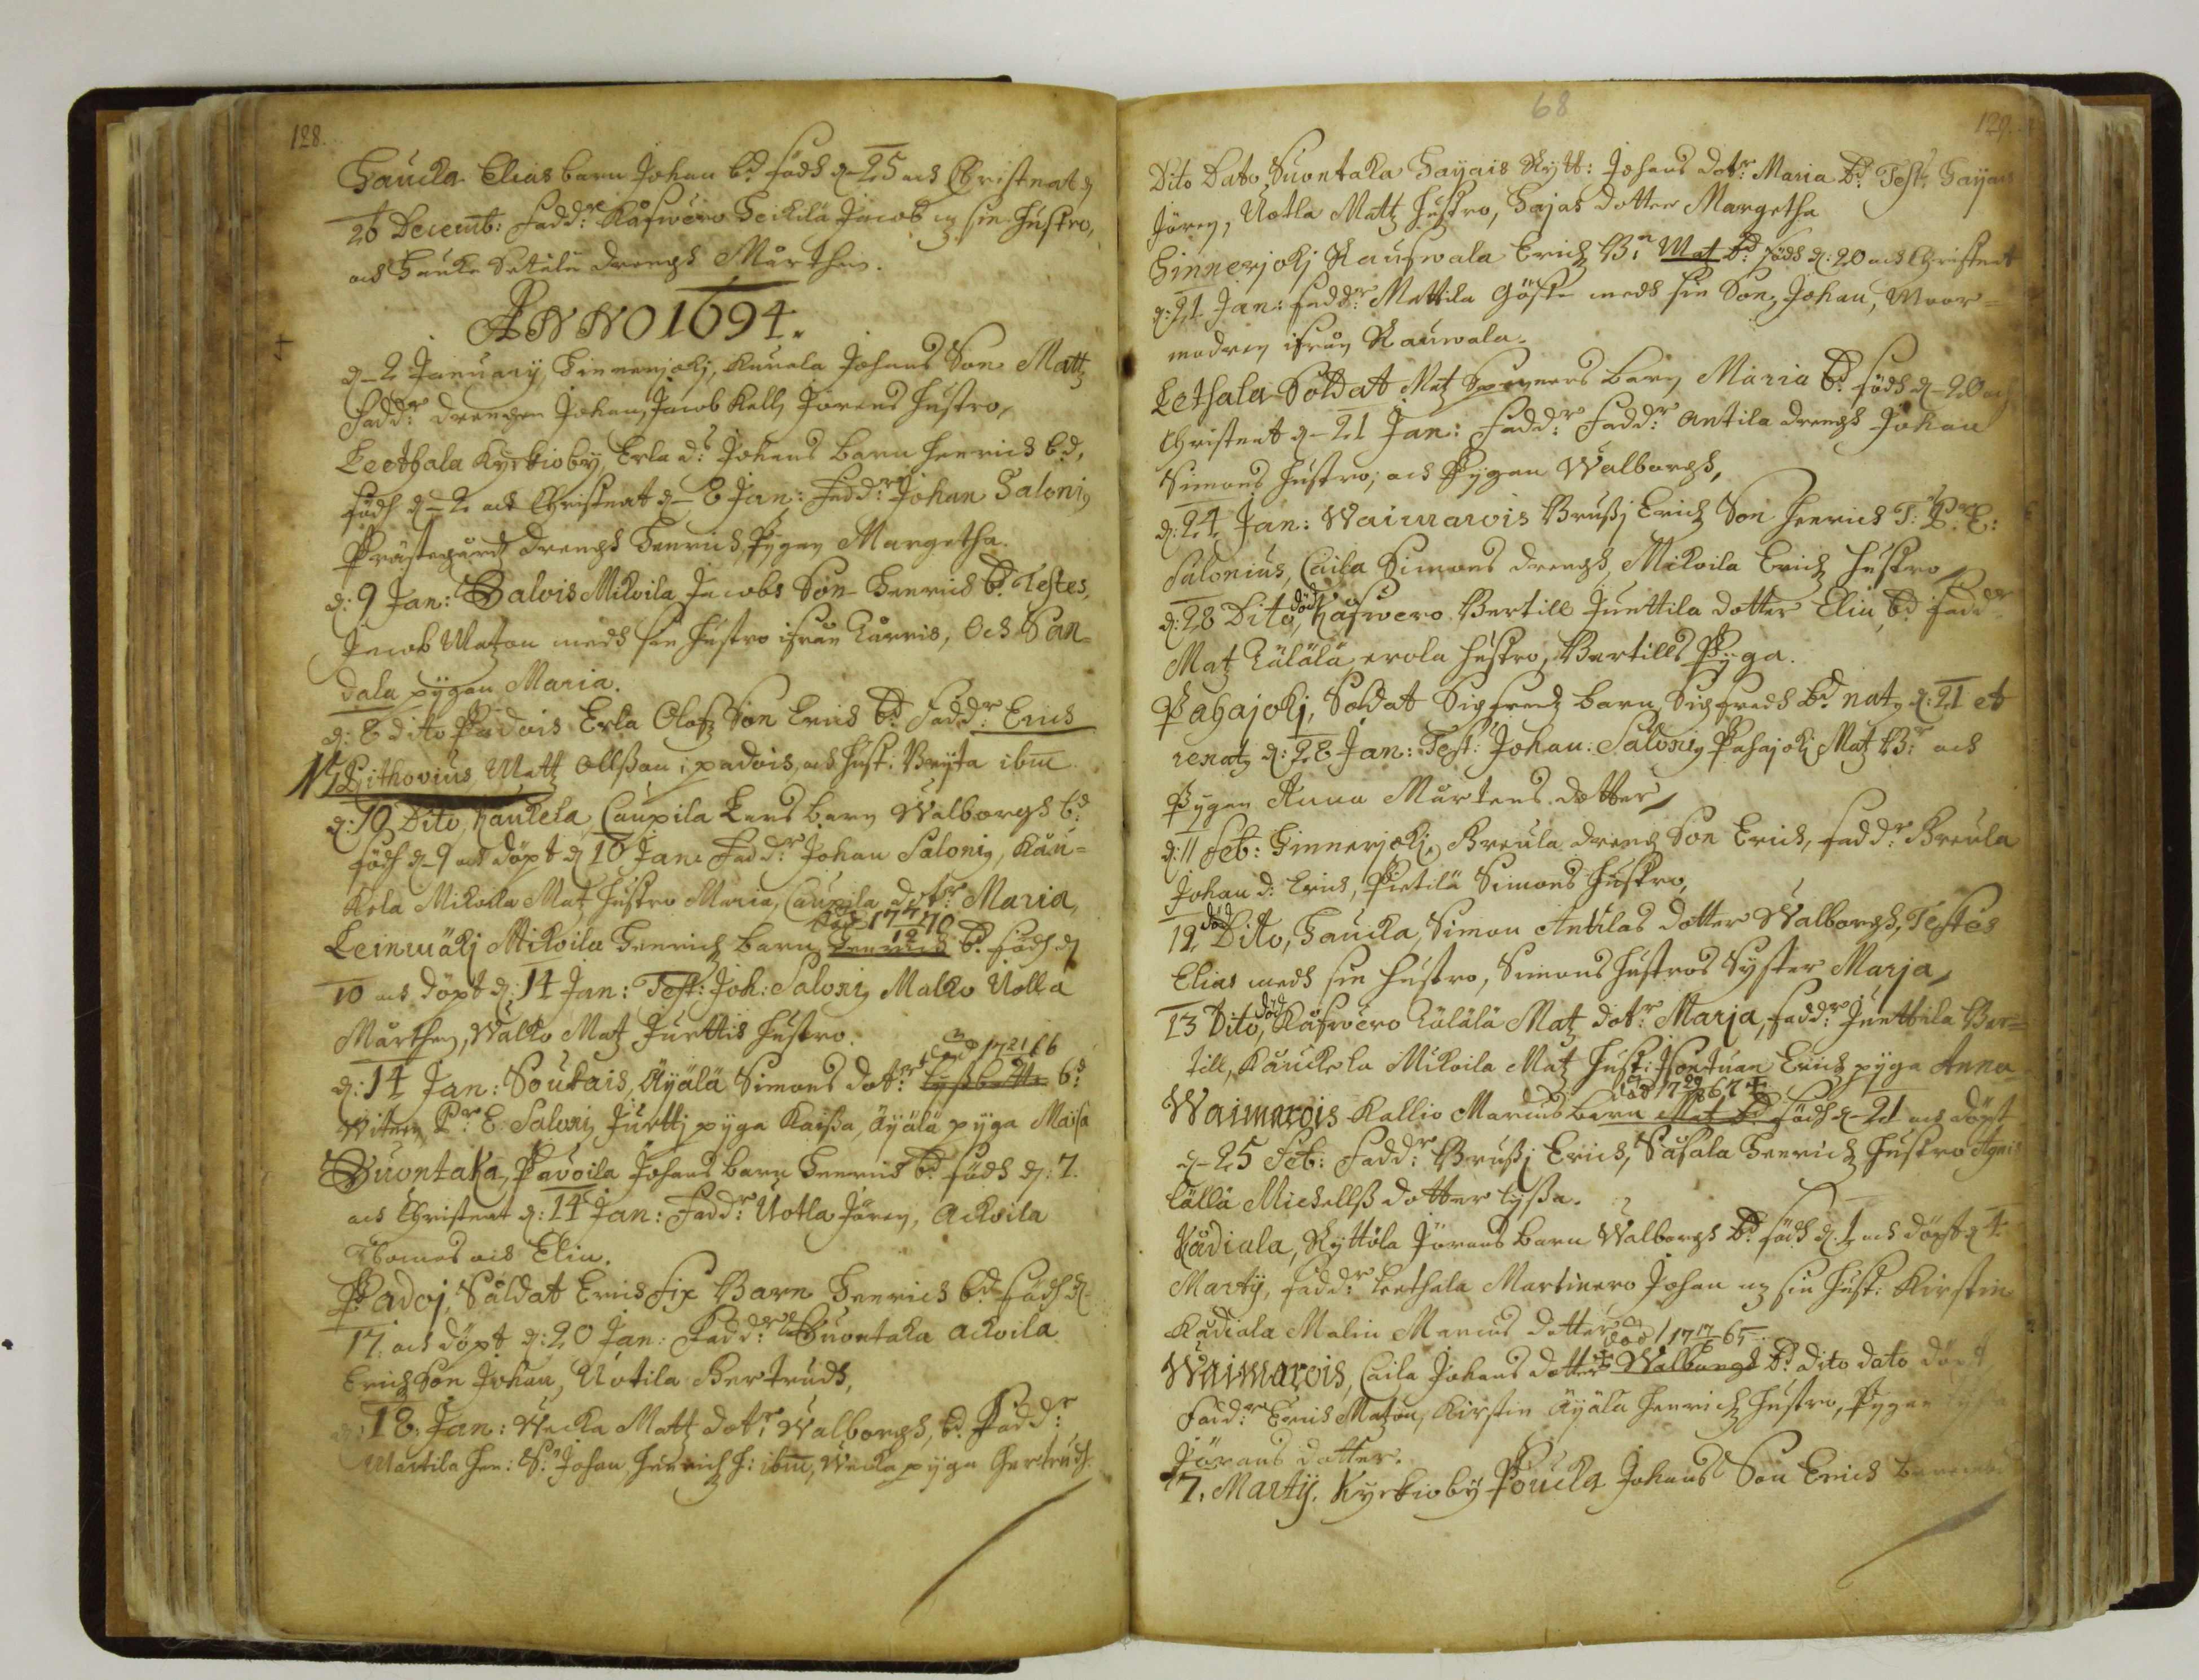 128.
Haucka Elias barn Johan bd. född d. 25 och Christnat d
26 Decemb: Fadd:r Kåfwero Heickilä Jacob m sin hustro,
och Haucka Setälä drengh Mårthen.
ANNO 1694.
d. 2 January, Hinnerjoki, Kuuala Johans Son Matz
Fadd:r drengen Johan, Jacob Kell, Jörens hustro,
Leethala Kyrkioby, Erla d: Johans barn Henrich bd,
född d. 2 och Christnat d. 8 Jan: Fadd:r Johan Saloni9
Prästegårdz drengh Henrich, Pygan Margetha.
d: 9 Jan: Salvis Mikoila Jacobs Son Henrich bd. Testes,
Jacob Matzon medh sin hustro ifrån Kårvis, och San-
dala pygan Maria.
d: 8 dito Padois Erla Olofz Son Erich bd Fadd:r Erich
Lithovius, Matz Ollsson i padois, och hust. Beyta ibm
d: 10 Dito, Kaukela Caupila Lars barn Walborgh bd
född d. 9 och döpt d 10 Jan. Fadd:r Johan Saloni9, Kau-
kela Mikoila Matz hustro Maria, Caupila dot:r Maria,
död 17 10
Leinmäki Mikoila Henrichz barn Henrich bd. född d
10 och döpt d: 14 Jan: Test: Joh: Saloni9 Malko Uolla
Mårthen, Walko Matz Jurttis hustro.
död 1721
d: 14 Jan: Soukais, Äyälä Simons dot:r Lyssbetta bd
Witnen P:r E. Saloni9 Jurtti pyga Kaissa, Äyälä pyga Maisa
Suontaka, Pavoila Johans barn Henrich bd född d: 7.
och Christnat d: 14 Jan: Fadd:r Uotla Jören, Ackoila
Thomas och Elin.
Padoj, Såldat Erich Fix Barn Henrich bd född d
17. och döpt d: 20 Jan: Fadd:r Suontaka Ackoila
Erichz Son Johan, Uotila Bertrudh,
d: 18: Jan: Wecka Matz dot:r Walborgh, bd. Fadd:r
Martila Hen: S: Johan, Henrich h: ibm, Wecka pyga Gertrudh.
68
129.
Dito Dato, Suontaka Hayais Rytt: Johans dot:r Maria bd. Test: Hayais
Jören, Uotla Matz hustro, Hajas dotter Margetha
Hinnerjoki Rauswala Erichz B:n Mat bd. född d: 20 och Christnat
d: 21 Jan: Fadd:r Mattila Gösta medh sin Son, Johan, Moor-
modren ifrån Rauwala.
Lethala Soldat Matz barn Maria bd. född d. 20 och
Christnat d. 21 Jan: Fadd:r Fadd:r Antila drengh Johan
Simons hustro, och Pygan Walborgh,
d: 24 Jan: Waimarois Brussi Erichz Son Henrich T: P:r E:
Salonius, Caila Simons drengh, Mikoila Erichz hustro
död
d: 28 Dito, Kåfwero Bertill Junttila dotter Elin, bd Fadd:r
Matz Kålålä hustro, Bertills Pyga.
Pahajoki, Soldat Sigfredz barn Sigfredh bd. nat9 d: 21 et
renat9 d: 28 Jan: Test: Johan: Saloni9 Pahajoki Matz B:r och
Pygan Anna Mårtens dotter
d: 11 Feb: Hinnerjoki, Breula drengz Son Erich, Fadd:r Breula
Johan d: Erich, Pietilä Simons hustro,
död
12 Dito, Haucka, Simon Antilas dotter Walborgh, Testes
Elias medh sin hustro, Simons hustros Syster Marja,
död
13 Dito, Kåfwero Kålålä Matz dot:r Marja, Fadd:r Junttila Ber-
till, Kauckela Mikoila Matz hust: Erichz pyga Anna
död 17 67
Waimarois Kallio Marcus barn Mat bd. född d. 21 och döpt
d. 25 Feb: Fadd:r Brussi Erich, Såfala Henrichz hustro Agnis
Lällä Michellss dotter Lyssa.
Kådiala, Ryttölä Jörans barn Walborgh bd. född d. 1 och döpt d 4.
Martij, Fadd:r Leethala Martinero Johan m sin hust. Kirstin
Kådiala Malin Marcus dotter
död 17 65
Waimarois, Caila Johans dotter Walborgh bd. dito dato döpt
Fadd:r Erich Matzon, Kirstin Äyälä Henrichz hustro, Pygan
Jörans dotter.
7. Martij. Kyrkioby Poucka Johans Son Erich